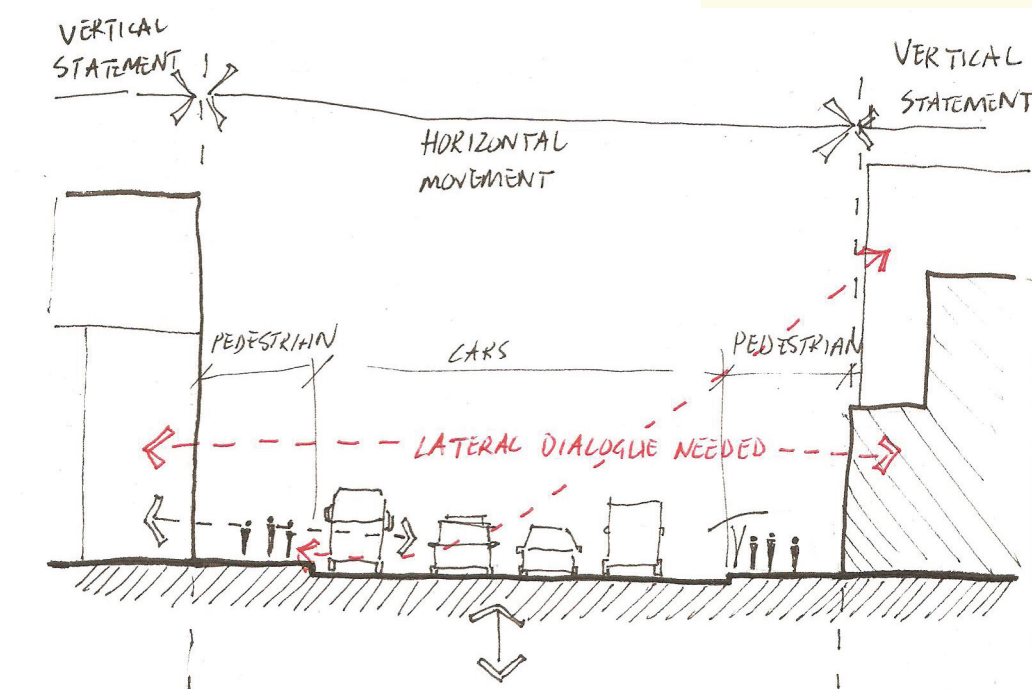 VERTICAL
STATEMENT
VERTICAL
STATEMENT
HORIZONTAL
MOVEMENT
PEDESTRIAN
CARS
PEDESTRIAN
LATERAL DIALOGUE NEEDED